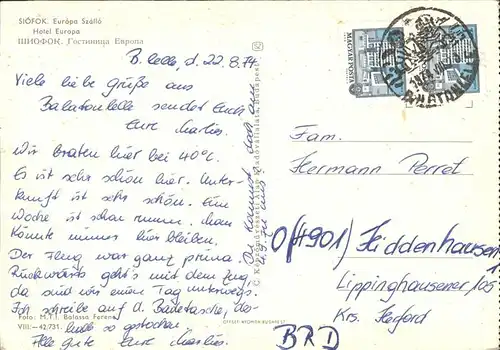 SIÓFOK. Európa Szálló
Hotel Europa
ШИОФОК. Гостиница Европа
B.lelle, d. 22.8.74
Viele liebe Grüße aus
Balatonlelle sendet Euch
Eure Marlies.
Wir braten hier bei 40°C.
Es ist sehr schön hier. Unter-
kunft ist sehr schön. Eine
Woche ist schon rum. Man
könnte immer hier bleiben.
Der Flug war ganz prima.
Rückwärts geht's mit dem Zug
da sind wir einen Tag unterwegs.
Ich schreibe auf d. Badetasche, des-
halb so gestochen.
Alle gute Eure Marlies.
Foto: M.T.I. Balassa Ferenc
VIII.-42.731.
OFFSET NYOMDA BUDAPEST
Képzőművészeti Alap Kiadóvállalata, Budapest
MAGYAR POSTA
Fam.
Hermann Perret
(4901) Hiddenhausen
Lippinghausener/105
Krs. Herford
BRD